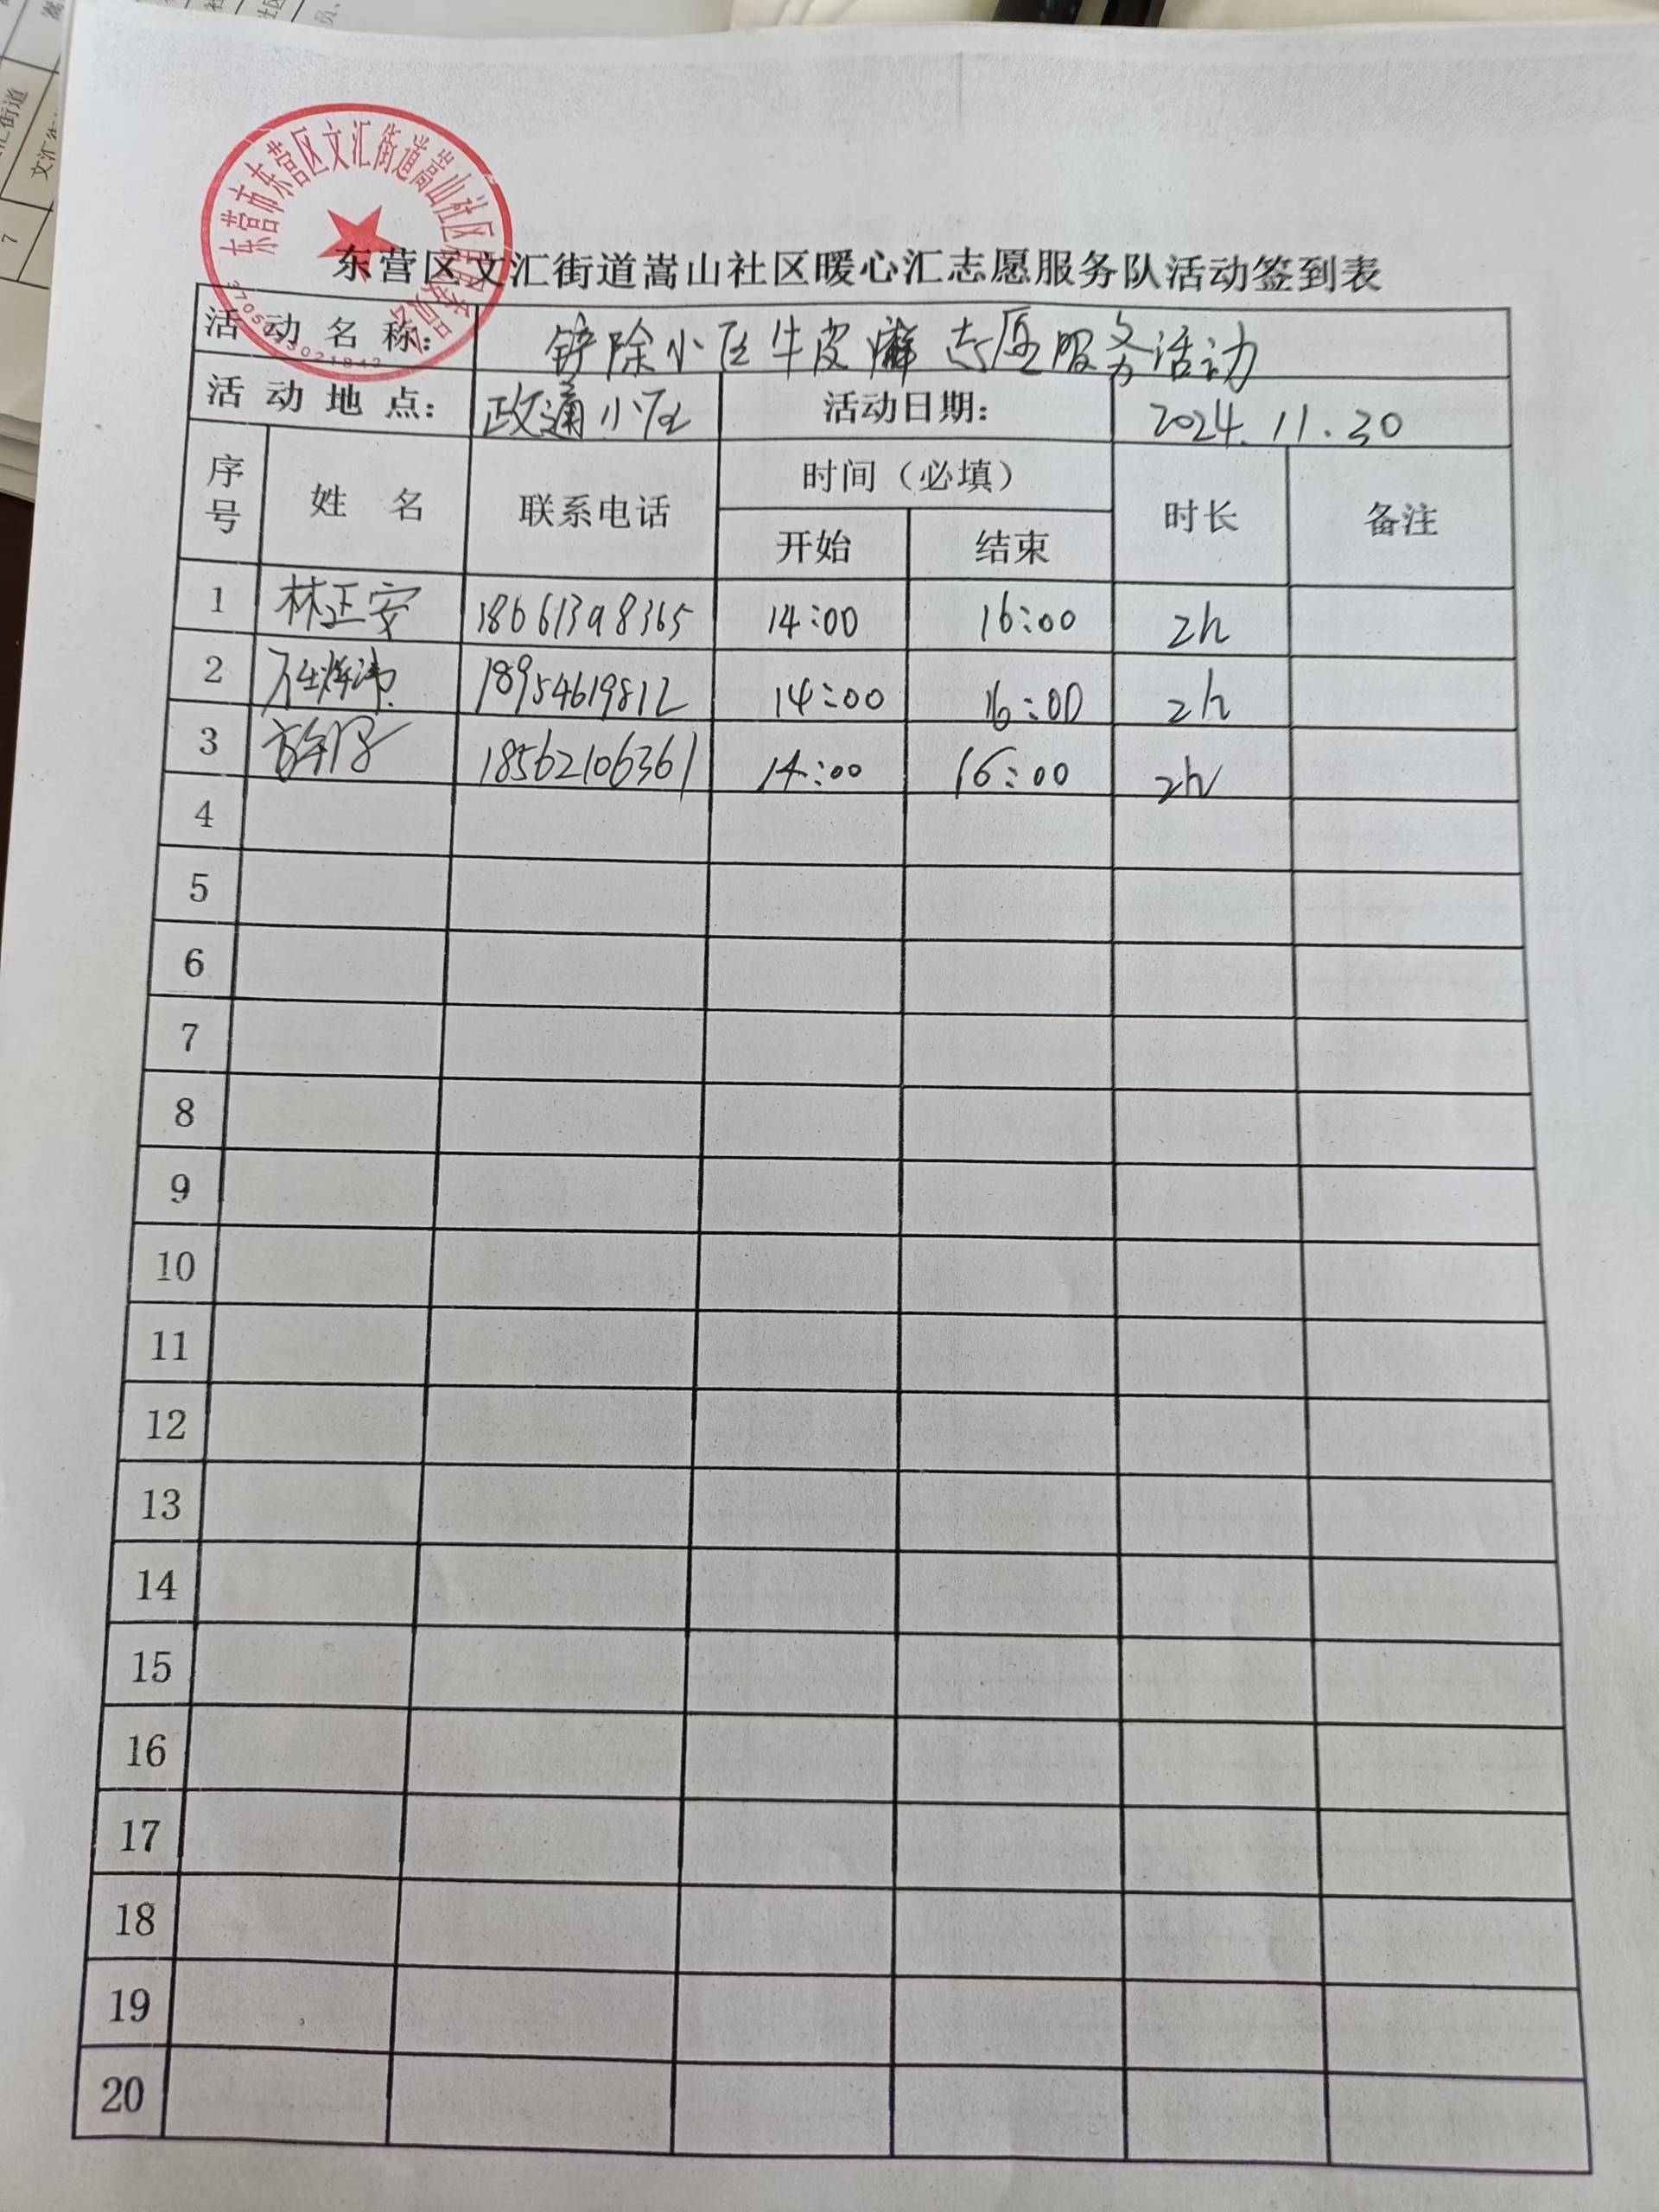 东营市东营区文汇街道嵩山社区居民委员会
东营区文汇街道嵩山社区暖心汇志愿服务队活动签到表
活动名称: 铲除小区牛皮癣志愿服务活动
活动地点: 政通小区 活动日期: 2024.11.30
序号 姓名 联系电话 时间（必填） 时长 备注
开始 结束
1 林正安 18661398365 14:00 16:00 2h
2 18954619812 14:00 16:00 2h
3 18562106361 14:00 16:00 2h
4
5
6
7
8
9
10
11
12
13
14
15
16
17
18
19
20
文汇街道
7